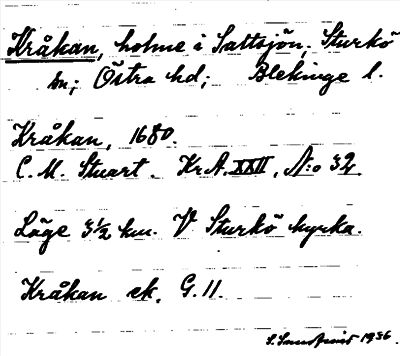 Kråkan, holme i Saltsjön, Sturkö
sn; Östra hd; Blekinge l.
Kråkan, 1680.
C. M. Stuart. Kr.A. XXII, N:o 32
Läge 3½ km. V Sturkö kyrka.
Kråkan ek. G. 11.
1936.